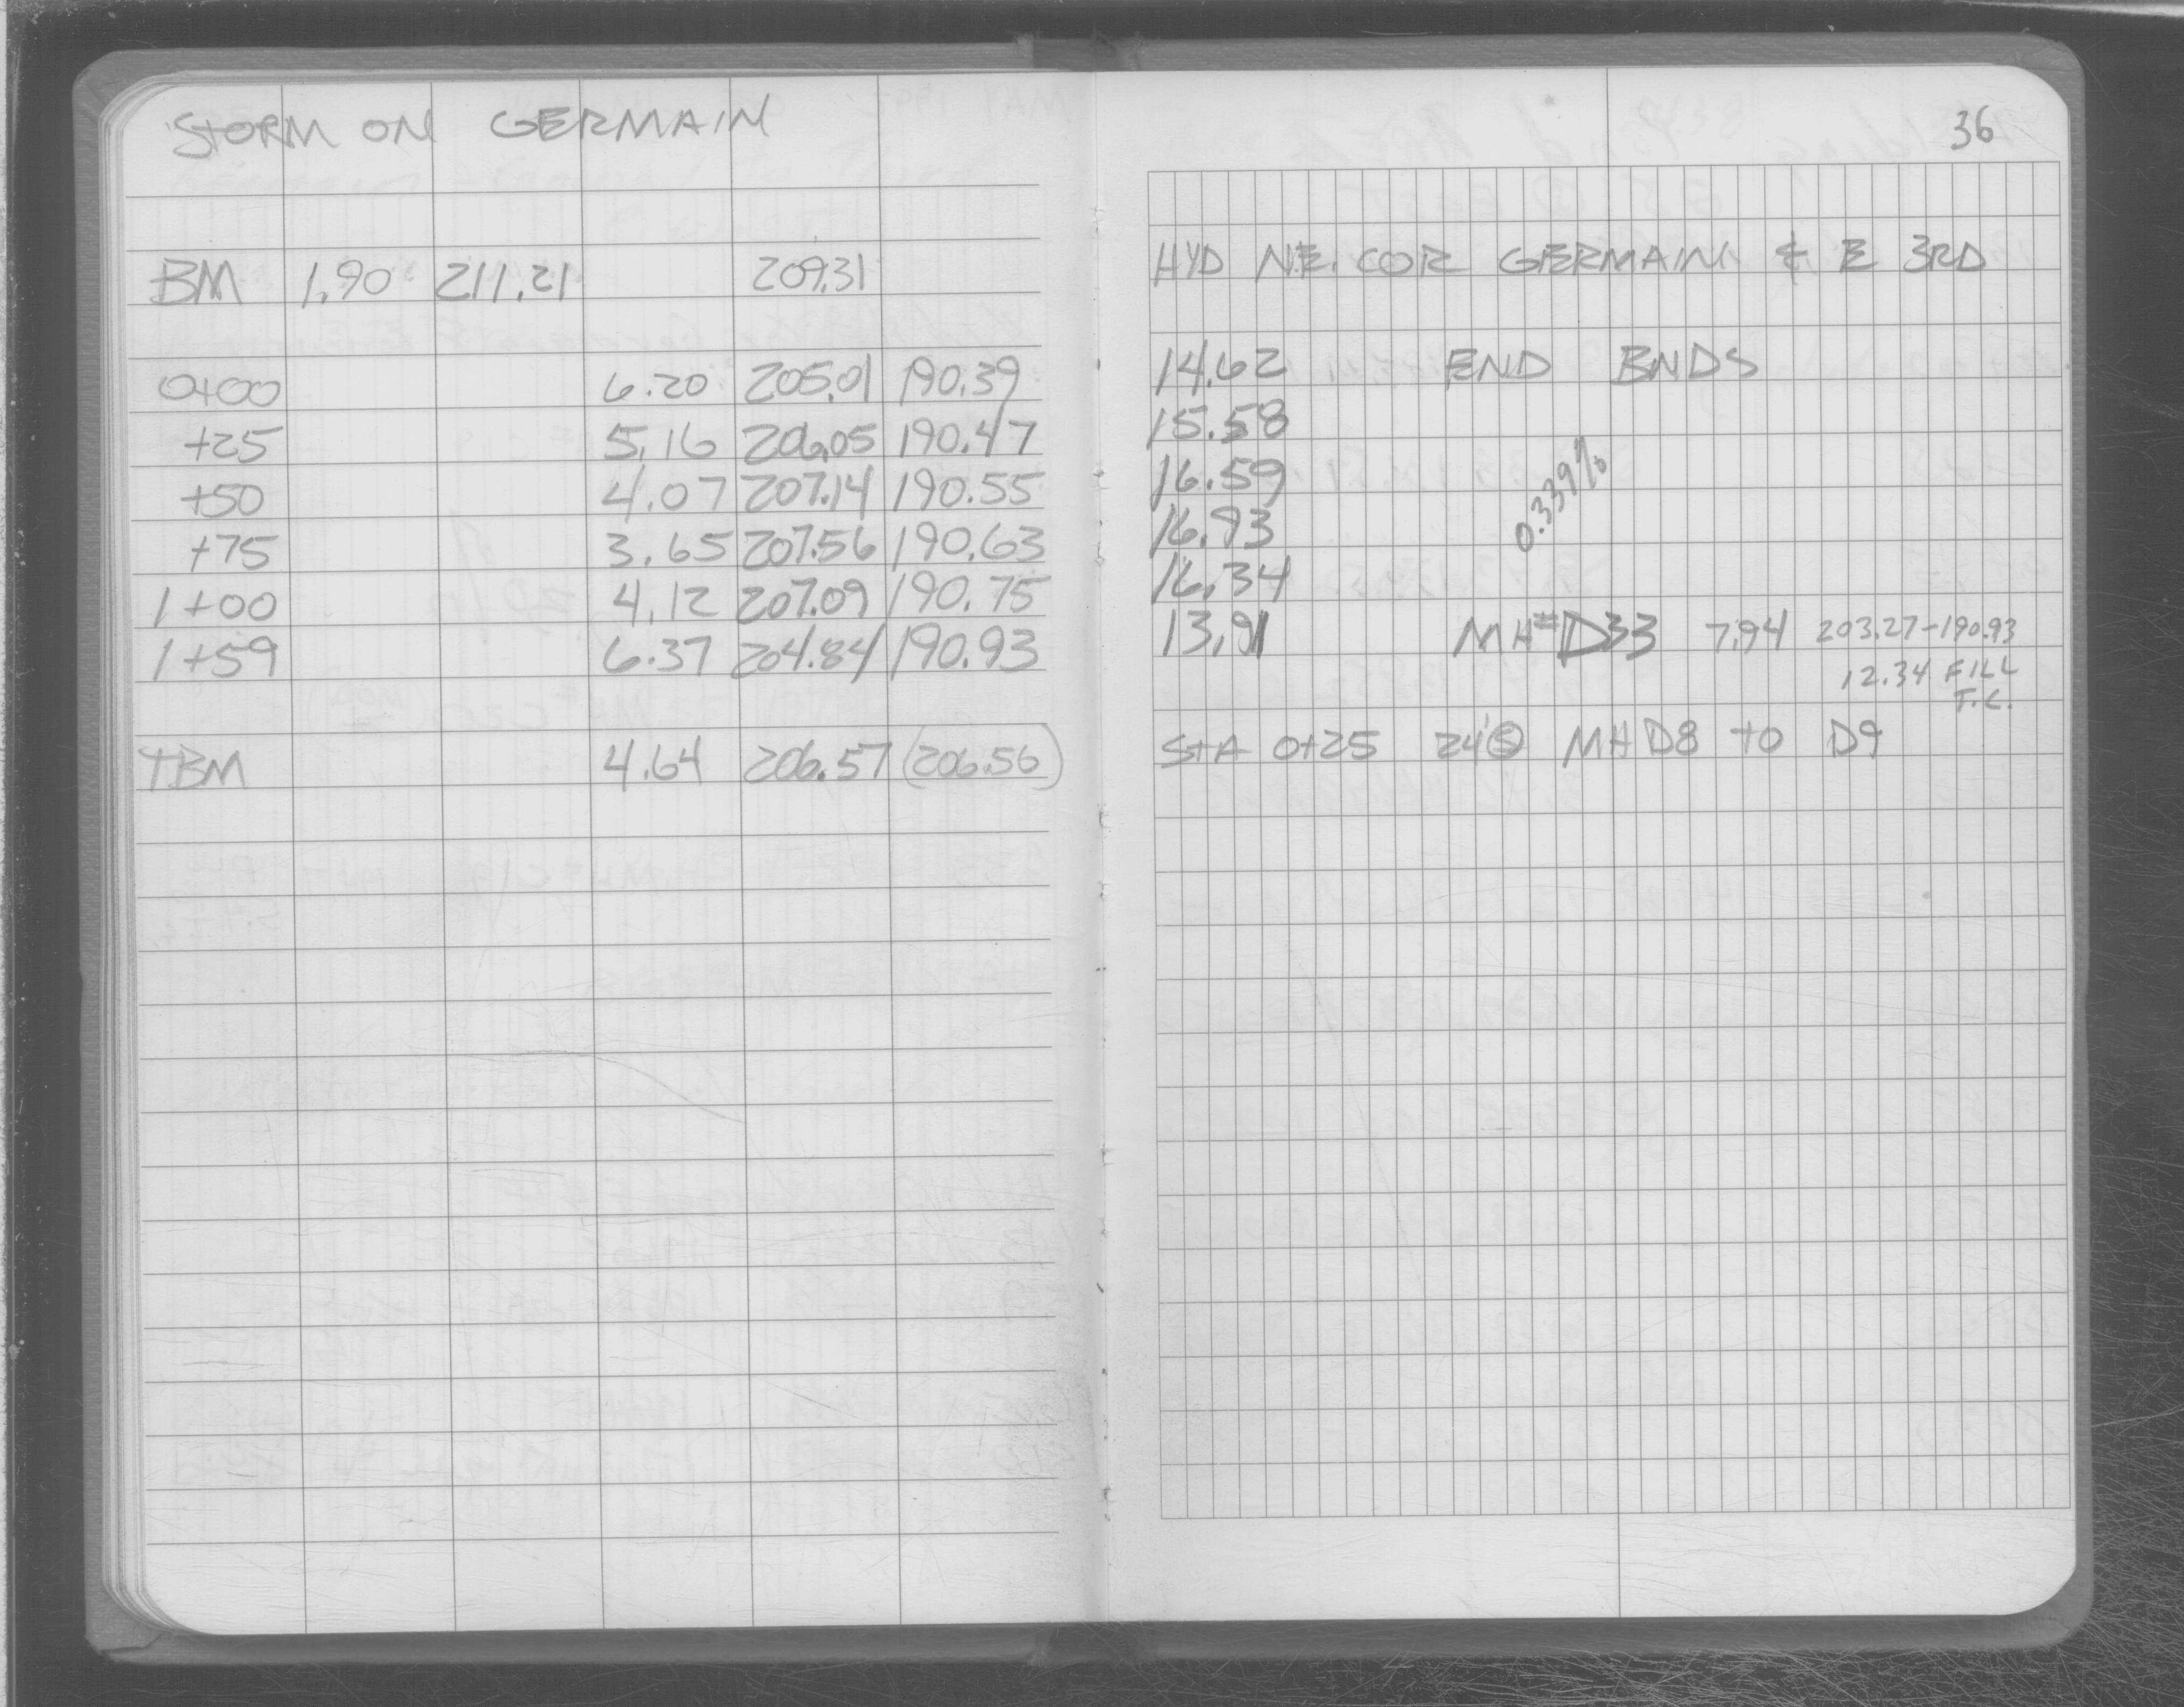 STORM ON GERMAIN
BM 1.90 211.21 209.31
0+00 6.20 205.01 190.39
+25 5.16 206.05 190.47
+50 4.07 207.14 190.55
+75 3.65 207.56 190.63
1+00 4.12 207.09 190.75
1+59 6.37 204.84 190.93
TBM 4.64 206.57 (206.56)
36
HYD N.E. COR GERMAIN & E 3RD
14.62 END BNDS
15.58
16.59
0.339%
16.93
16.34
13.91 MH#D33 7.94 203.27-190.93
12.34 FILL
T.C.
STA 0+25 24' MH D8 TO D9